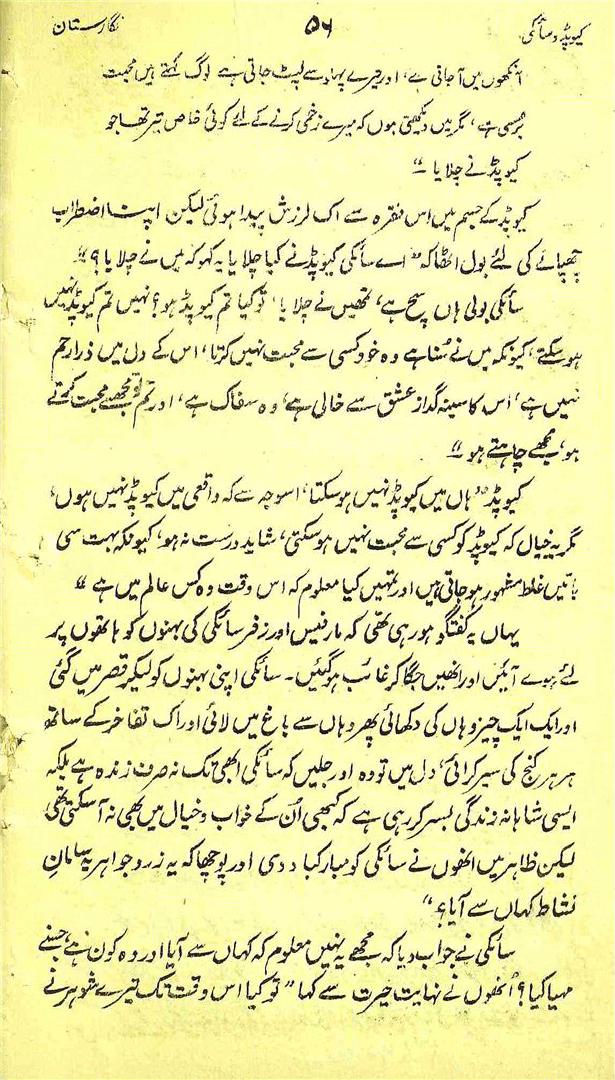 کیوپڈ و سائکی ۵۶ نگارستان
آنکھوں میں آجاتی ہے، اور میرے پہلو سے لپٹ جاتی ہے لوگ کہتے ہیں محبت
بُر سی ہے، مگر میں دیکھتی ہوں کہ میرے زخمی کرنے کے لئے کوئی خاص تیر تھا جو
کیوپڈ نے چلایا“
کیوپڈ کے جسم میں اس فقرہ سے اک لرزش پیدا ہوئی لیکن اپنا اضطراب
چھپانے کی لئے بول اٹھا کہ ”اے سائکی کیوپڈ نے کیا چلایا یہ کہو کہ میں نے چلایا؟“
سائکی بولی ہاں سچ ہے، تمھیں نے چلایا، تو کیا تم کیوپڈ ہو؟ نہیں تم کیوپڈ نہیں
ہو سکتے، کیونکہ میں نے سُنا ہے وہ خود کسی سے محبت نہیں کرتا، اس کے دل میں ذرا رحم
نہیں ہے، اس کا سینہ گداز عشق سے خالی ہے، وہ سفاک ہے، اور تم تو مجھسے محبت کرتے
ہو، مجھے چاہتے ہو“
کیوپڈ ”ہاں میں کیوپڈ نہیں ہو سکتا، اسوجہ سے کہ واقعی میں کیوپڈ نہیں ہوں،
مگر یہ خیال کہ کیوپڈ کو کسی سے محبت نہیں ہو سکتی، شاید درست نہ ہو، کیونکہ بہت سی
باتیں غلط مشہور ہو جاتی ہیں اور تمہیں کیا معلوم کہ اس وقت وہ کس عالم میں ہے“
یہاں یہ گفتگو ہو رہی تھی کہ مارفیس اور زفر سائکی کی بہنوں کو ہاتھوں پر
لئے ہوے آئیں اور انھیں جگا کر غائب ہو گئیں۔ سائکی اپنی بہنوں کو لیکر قصر میں گئی
اور ایک ایک چیز وہاں کی دکھائی پھر وہاں سے باغ میں لائی اور اک تفاخر کے ساتھ
ہر ہر کنج کی سیر کرائی، دل میں تو وہ اور جلیں کہ سائکی ابھی تک نہ صرف زندہ ہے بلکہ
ایسی شاہانہ زندگی بسر کر رہی ہے کہ کبھی اُن کے خواب و خیال میں بھی نہ آسکتی تھی
لیکن ظاہر میں انھوں نے سائکی کو مبارکباد دی اور پوچھا کہ یہ زر و جواہر یہ سامانِ
نشاط کہاں سے آیا؟“
سائکی نے جواب دیا کہ مجھے یہ نہیں معلوم کہ کہاں سے آیا اور وہ کون ہے جسنے
مہیا کیا؟ اُنھوں نے نہایت حیرت سے کہا ”تو کیا اس وقت تک تیرے شوہر نے